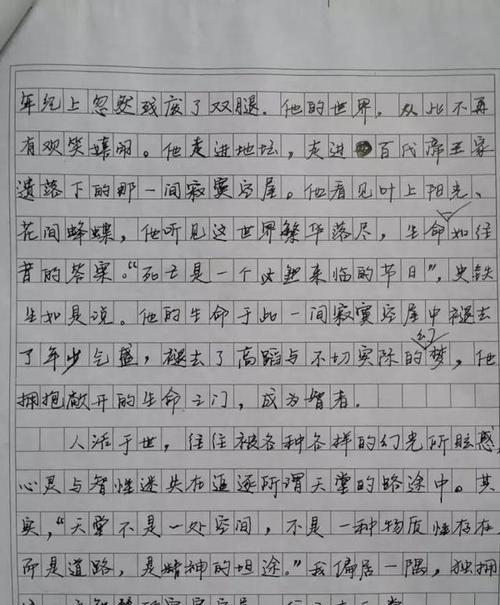 年纪上忽然残废了双腿。他的世界，从此不再
有欢笑嬉闹。他走进地坛，走进百代帝王家
遗落下的那一间寂寞空屋。他看见叶上阳光、
花间蜂蝶，他听见这世界繁华落尽，生命如往
昔的答案。“死亡是一个必然来临的节日”，史铁
生如是说。他的生命于此一间寂寞空屋中褪去
了年少气盛，褪去了高蹈与不切实际的幻梦，他
拥抱敞开的生命之门，成为智者。
人活于世，往往被各种各样的幻光所眩惑，
心灵与智性迷失在追逐所谓天堂的路途中。其
实，“天堂不是一处空间，不是一种物质性存在，
而是道路，是精神的坦途。”我偏居一隅，独拥